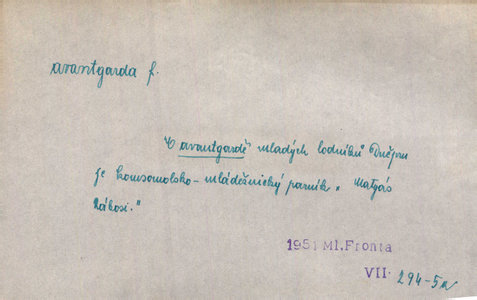 avantgarda f.
V avantgardě mladých lodníků Dněpru
je komsomolsko-mládežnický parník „Matyás
Rákosi."
1951 Ml. Fronta
VII. 294-5a